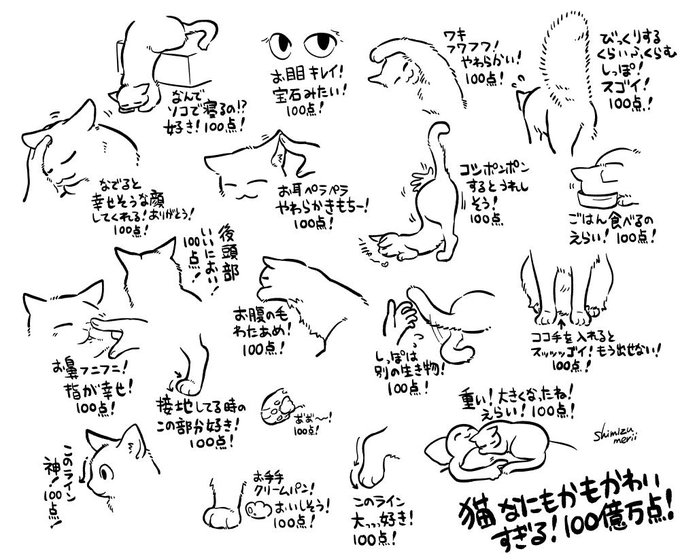 なんで
ソコで寝るの!?
好き!100点!
お目目キレイ!
宝石みたい!
100点!
ワキ
フワフワ!
やわらかい!
100点!
びっくりする
くらいふくらむ
しっぽ!
スゴイ!
100点!
なでると
幸せそうな顔
してくれる!ありがとう!
100点!
お耳ペラペラ
やわらかきもちー!
100点!
コシポンポン
するとうれし
そう!
100点
ごはん食べるの
えらい!100点!
後頭部
いいにおい!
100点!
お腹の毛
わたあめ!
100点!
しっぽは
別の生き物!
100点!
ココ手を入れると
スッッッゴイ!もう出せない!
100点!
お鼻フニフニ!
指が幸せ!
100点!
接地してる時の
この部分好き!
100点!
おぉ〜!
100点!
重い!大きくなったね!
えらい!100点!
shimizu
merii
このライン
神!100点!
お手手
クリームパン!
おいしそう!
100点!
このライン
大っっ好き!
100点!
猫なにもかもかわい
すぎる!100億万点!